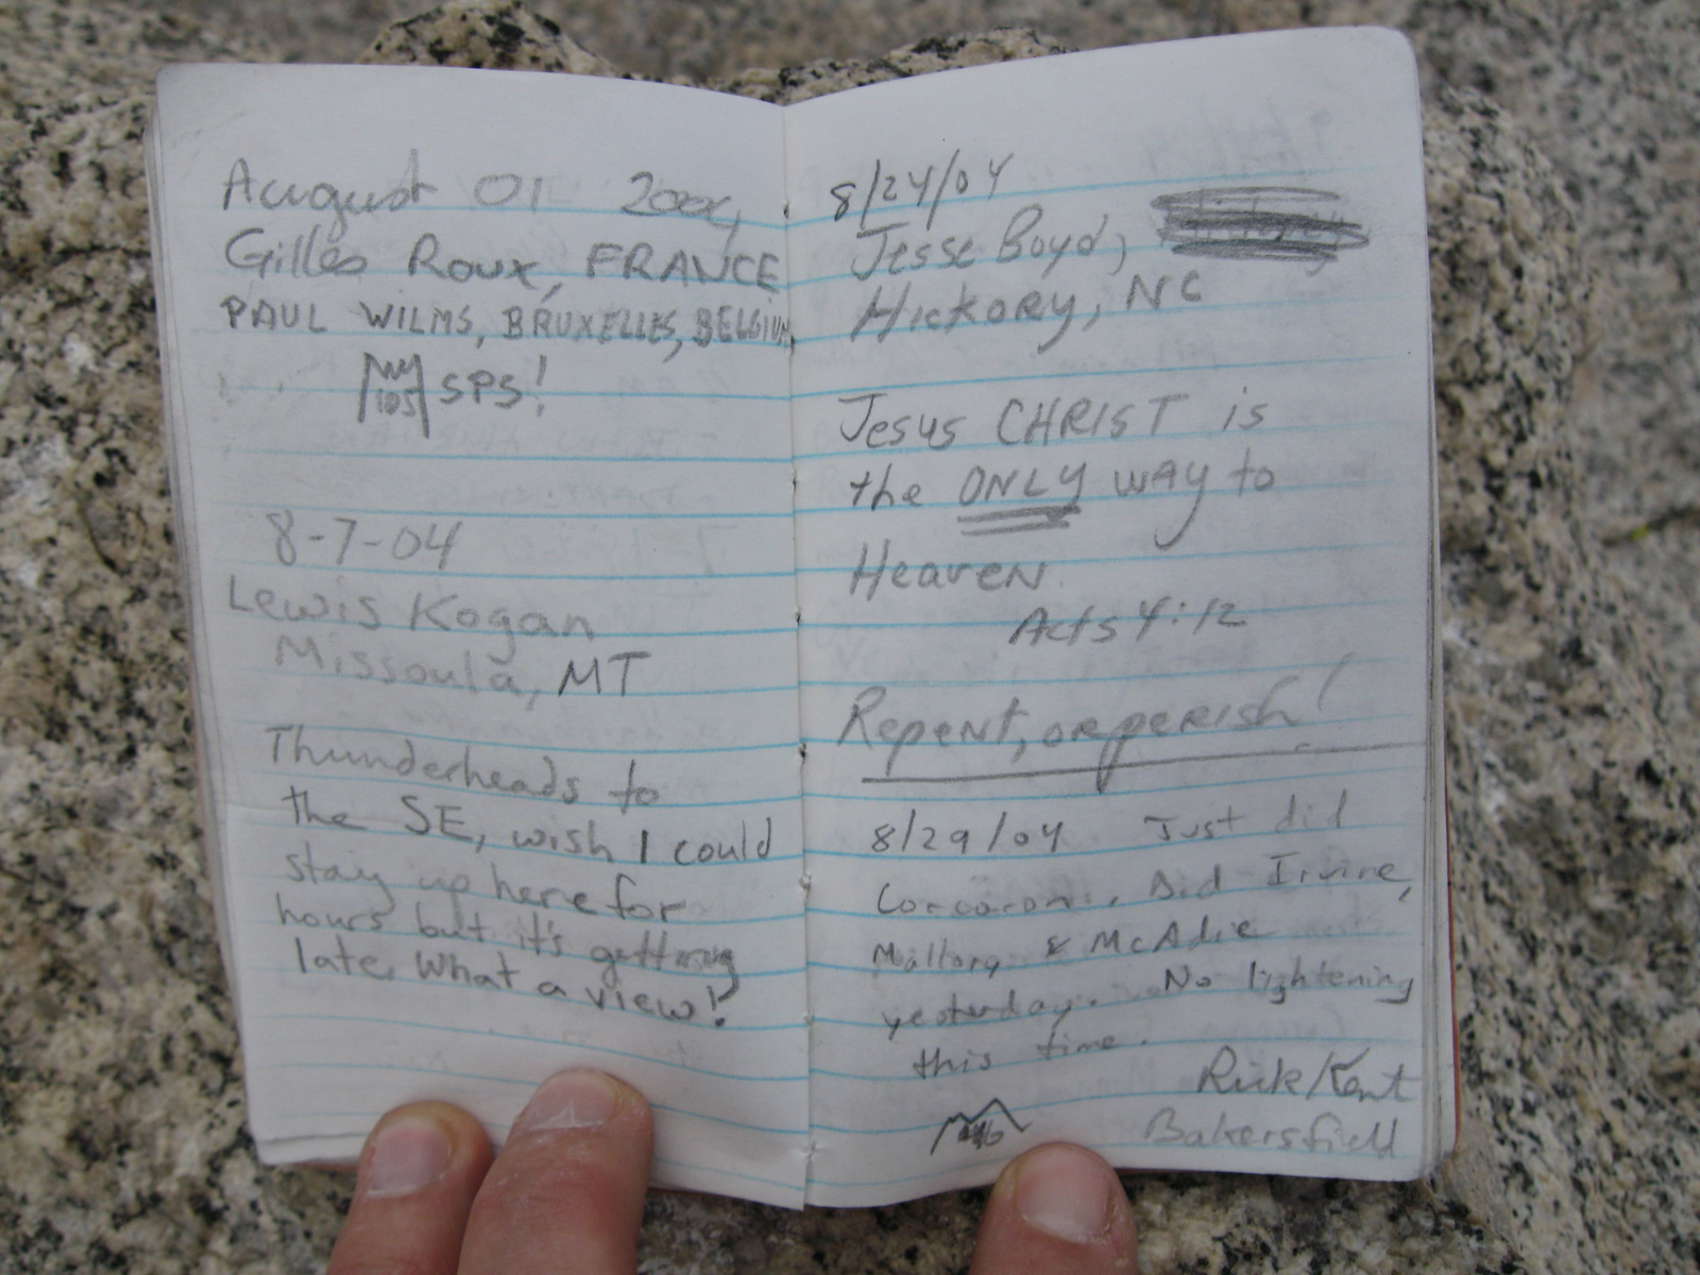 August 01
Gilles Roux, FRANCE
PAUL WILMS, BRUXELLES, BELGIUM
SPS!
8-7-04
Lewis Kogan
Missoula, MT
Thunderheads to
the SE, wish I could
stay up here for
hours but it's getting
late. What a view!
8/24/04
Jesse Boyd,
Hickory, NC
Jesus CHRIST is
the ONLY WAY to
Heaven
Acts 4:12
Repent, or perish!
8/29/04 Just did
Corcoron. Did Irvine,
Mallory & McAdie
yesterday. No lightening
this time.
Rick Kent
Bakersfield